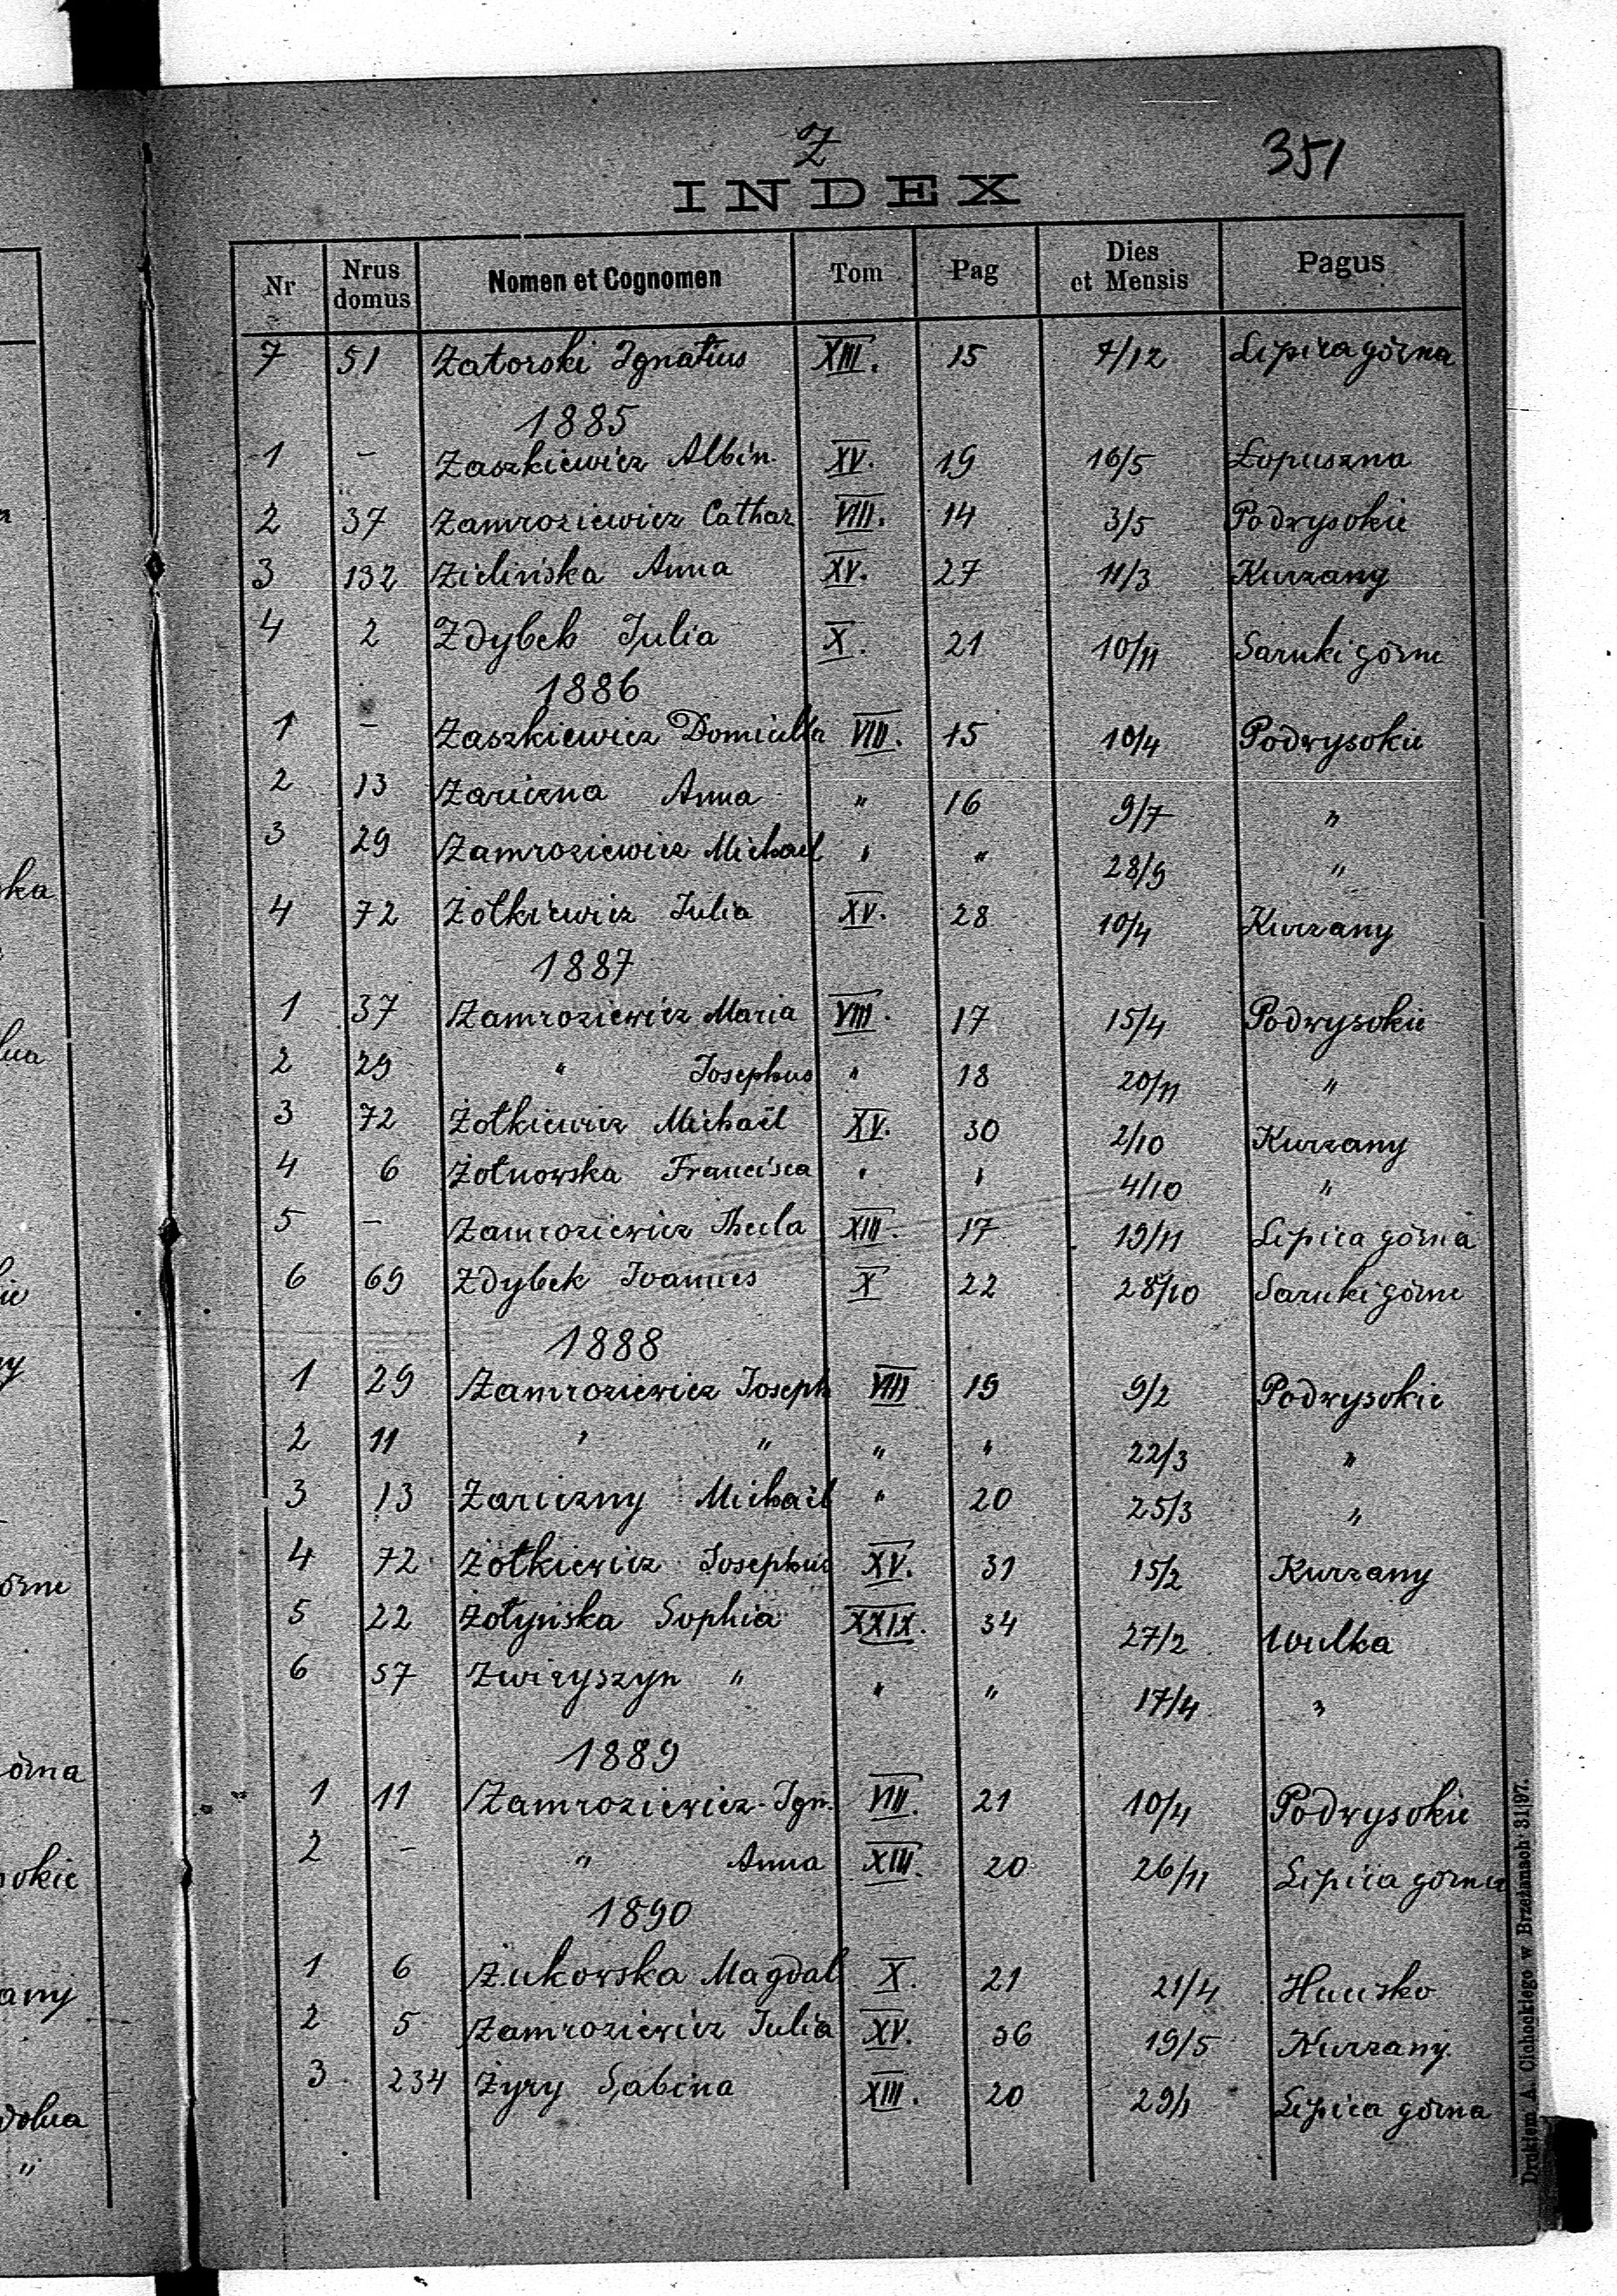 Z
351
INDEX
Nr Nrus domus Nomen et Cognomen Tom Pag Dies et Mensis Pagus
7 51 Zatorski Ignatius XIII. 15 7/12 Lipica górna
1885
1 - Zaszkiewicz Albin. XV. 19 16/5 Łopuszna
2 37 Zamroziewicz Cathar VIII. 14 3/5 Podwysokie
3 132 Zielińska Anna XV. 27 11/3 Kurzany
4 2 Zdybek Julia X. 21 10/11 Sarnki górne
1886
1 - Zaszkiewicz Domicella VIII. 15 10/4 Podwysokie
2 13 Zariczna Anna " 16 9/7 "
3 29 Zamroziewicz Michael " " 28/9 "
4 72 Żółkiewicz Julia XV. 28 10/4 Kurzany
1887
1 37 Zamroziewicz Maria VIII. 17 15/4 Podwysokie
2 29 " Josephus " 18 20/11 "
3 72 Żołkiewicz Michaël XV. 30 2/10 Kurzany
4 6 Żołnowska Francisca " " 4/10 "
5 - Zamroziewicz Thecla XIII. 17 19/11 Lipica górna
6 69 Zdybek Joannes X 22 28/10 Sarnki górne
1888
1 29 Zamroziewicz Joseph VIII 19 9/2 Podwysokie
2 11 " " " " 22/3 "
3 13 Zariczny Michaël " 20 25/3 "
4 72 Żółkiewicz Josephus XV. 31 15/2 Kurzany
5 22 Żołyńska Sophia XXIX. 34 27/2 Wulka
6 57 Zwiryszyn " " " 17/4 "
1889
1 11 Zamroziewicz Ign. VIII. 21 10/4 Podwysokie
2 - " Anna XIII. 20 26/11 Lipica górna
1890
1 6 Żukowska Magdal X. 21 21/4
2 5 Zamroziewicz Julia XV. 36 19/5 Kurzany.
3 234 Żyry Sabina XIII. 20 29/1 Lipica górna
Drukiem A. Cichockiego w Brzeżanach 31|97.